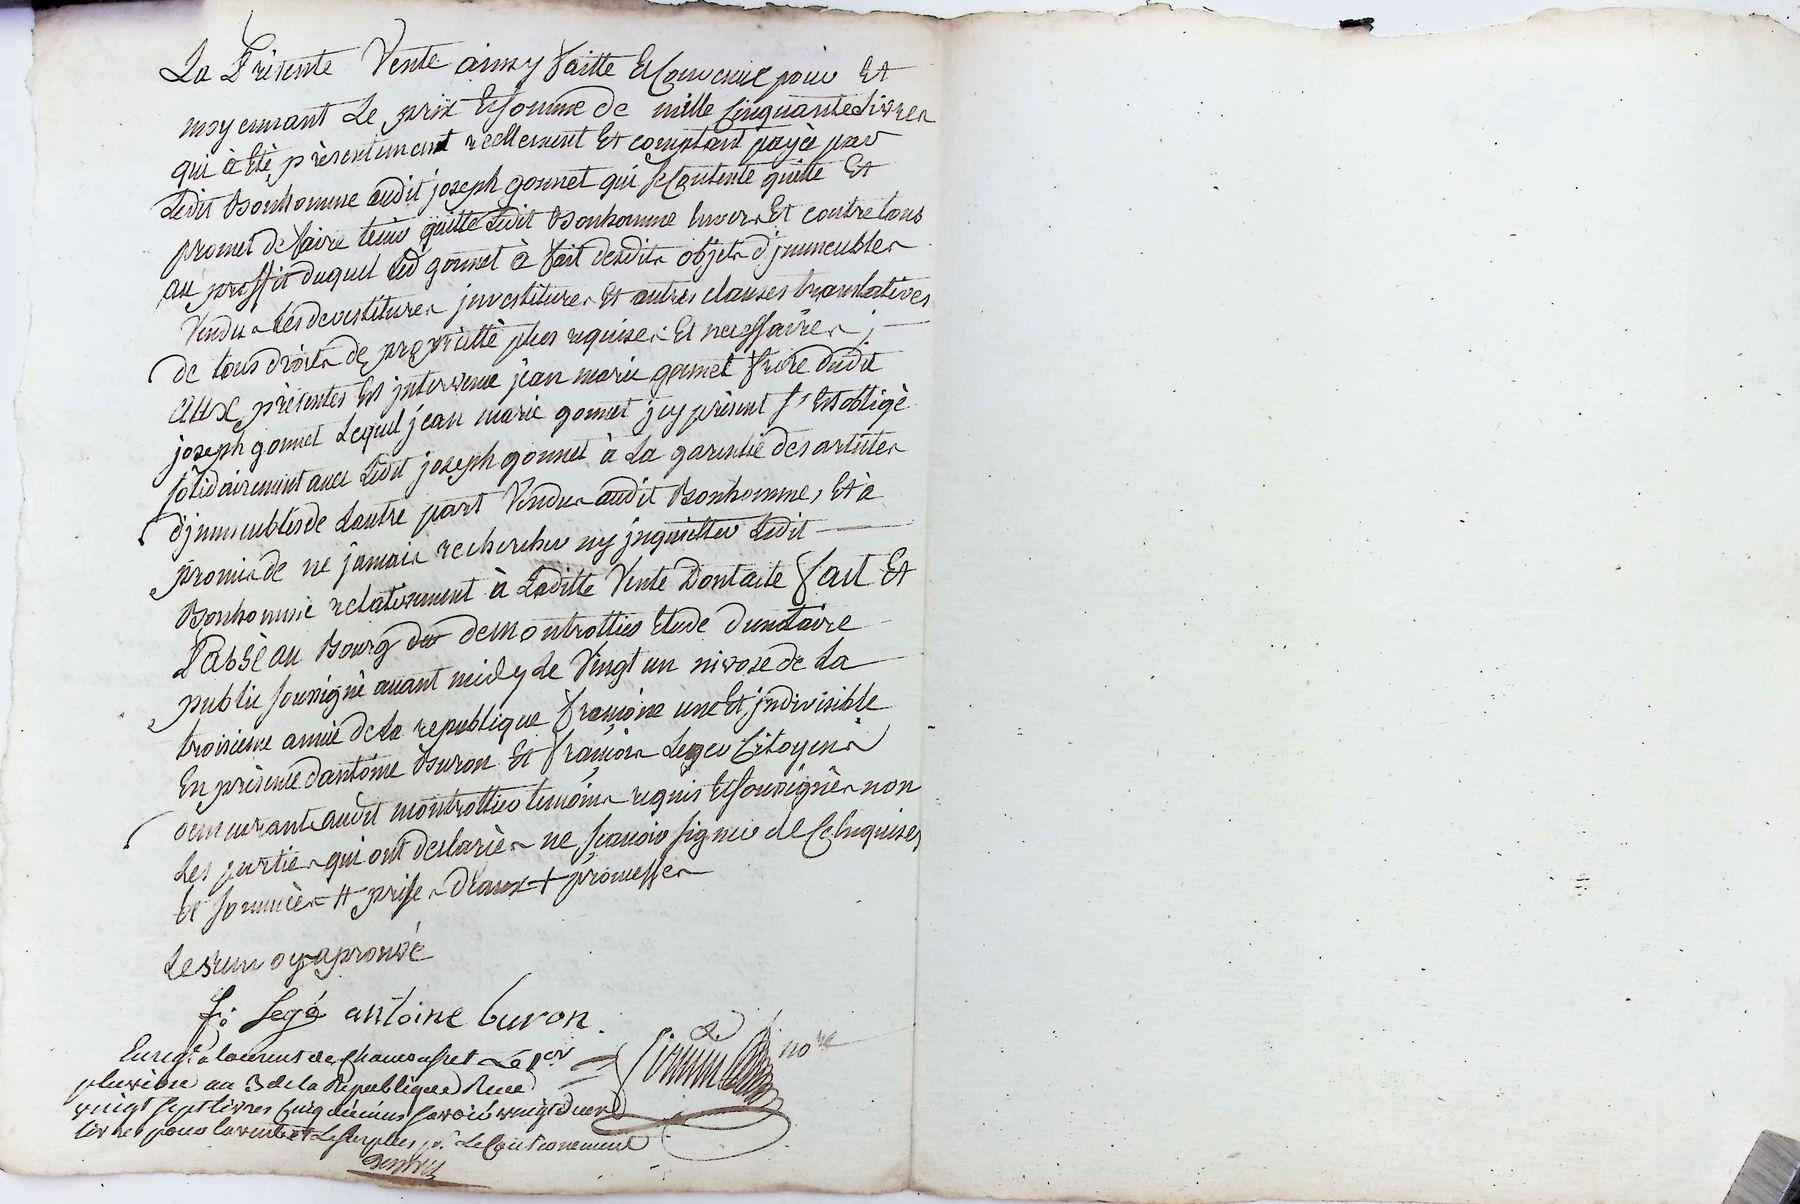 La Présente Vente ainsy faitte Et Convenue pour Et
moyennant Le prix Et somme de mille Cinquante Livres
qui à Eté présentement reellement Et comptant payé par
Ledit Bonhomme audit joseph gonnet qui se Contente quitte Et
promet de faire tenir quitte Ledit Bonhomme Envers Et contre tous
au proffit duquel Led gonnet à fait desdits objets d'jmmeubles
Vendus Les devestitures jnvestitures Et autres clauses translatives
de tous droits de propriétté plus requises Et necessaires ;
aux présentes Est jntervenu jean marie gonnet frere dudit
joseph gonnet Lequel jean marie gonnet jcy présent s'Est obligé
solidairement avec Ledit joseph gonnet à La garentie des articles
d'jmmeubles de Lautre part Vendus audit Bonhomme, Et à
promis de ne jamais rechercher ny jnquietter Ledit
Bonhomme relativement à Laditte Vente Dont acte fait Et
Passé au Bourg de montrottier Etude du notaire
public soussigné avant midy Le Vingt un nivose de La
troisieme année de La republique françoise une Et jndivisible
En présence dantoine Buron Et françois Leger Citoyens
demeurants audit montrottier temoins requis Et soussignés non
Les parties qui ont declarés ne scavoir signer de Ce Enquises
Et sommées # prises d'eaux + promesses
Leu oy aprouvé
f: Legé antoine buron
no.re
Enregé a laurent de Chamousset Le 1er
pluviose an 3 de la Republique Recu
vingt sept livres Cinq decimes savoir vingt deux
livres pour la vente et Le surplus pr Le Cautionnement